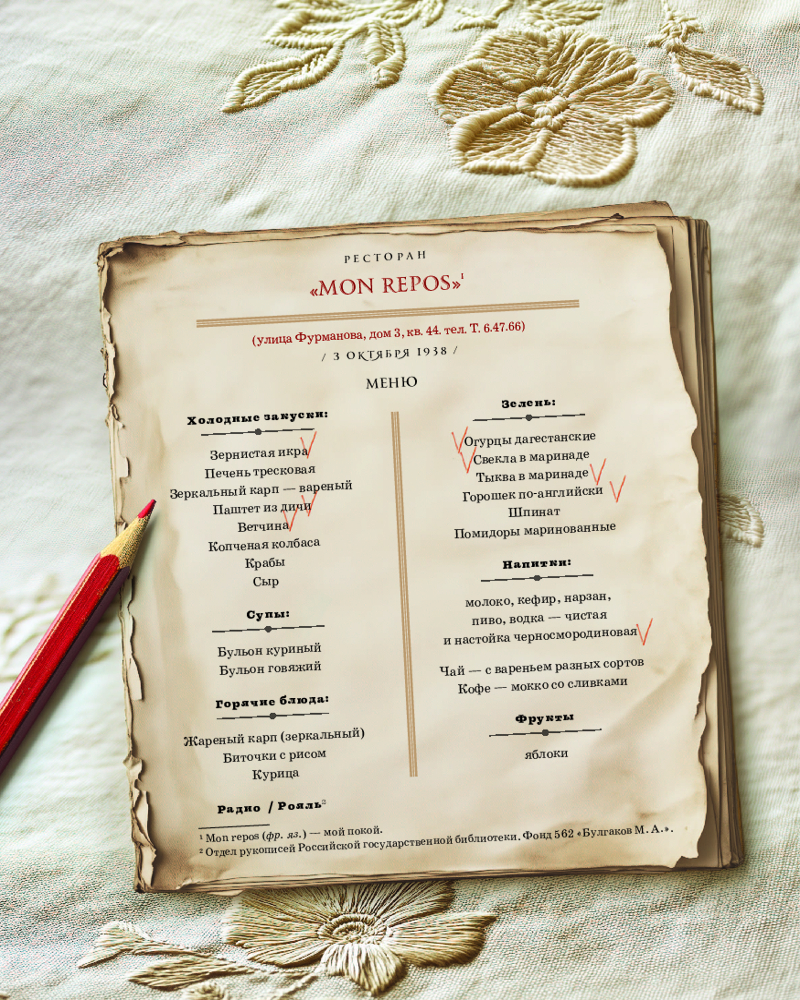 РЕСТОРАН
«MON REPOS»¹
(улица Фурманова, дом 3, кв. 44. тел. Т. 6.47.66)
/ 3 ОКТЯБРЯ 1938 /
МЕНЮ
Холодные закуски:
Зернистая икра
Печень тресковая
Зеркальный карп — вареный
Паштет из дичи
Ветчина
Копченая колбаса
Крабы
Сыр
Супы:
Бульон куриный
Бульон говяжий
Горячие блюда:
Жареный карп (зеркальный)
Биточки с рисом
Курица
Радио / Рояль²
Зелень:
Огурцы дагестанские
Свекла в маринаде
Тыква в маринаде
Горошек по-английски
Шпинат
Помидоры маринованные
Напитки:
молоко, кефир, нарзан,
пиво, водка — чистая
и настойка черносмородиновая
Чай — с вареньем разных сортов
Кофе — мокко со сливками
Фрукты
яблоки
¹ Mon repos (фр. яз.) — мой покой.
² Отдел рукописей Российской государственной библиотеки. Фонд 562 «Булгаков М. А.».